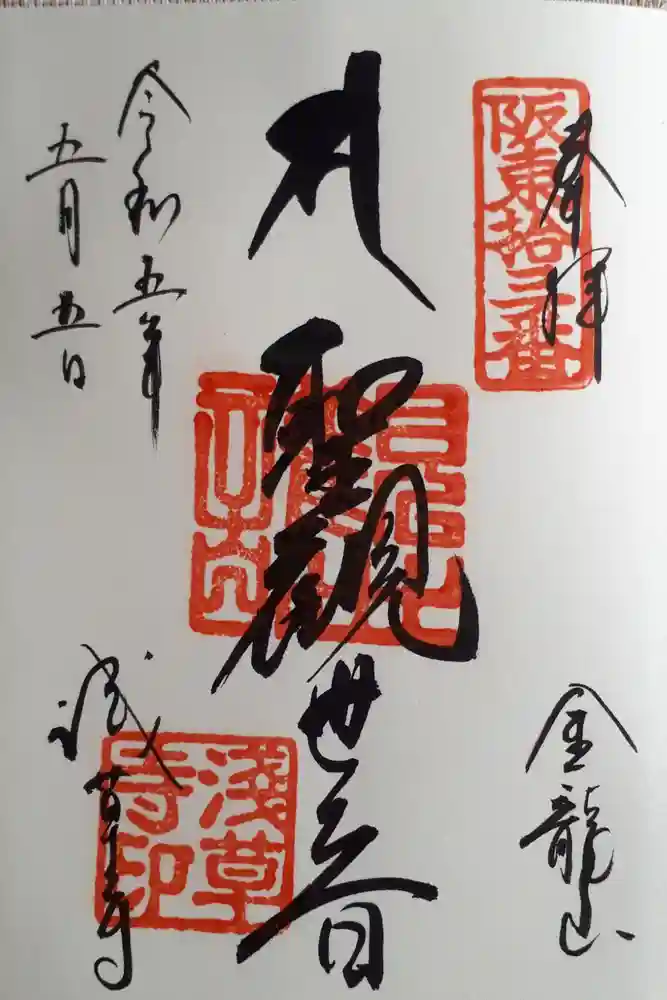 奉拝
阪東拾三番
金龍山
聖観世音
浅草寺
淺草寺印
令和五年
五月五日